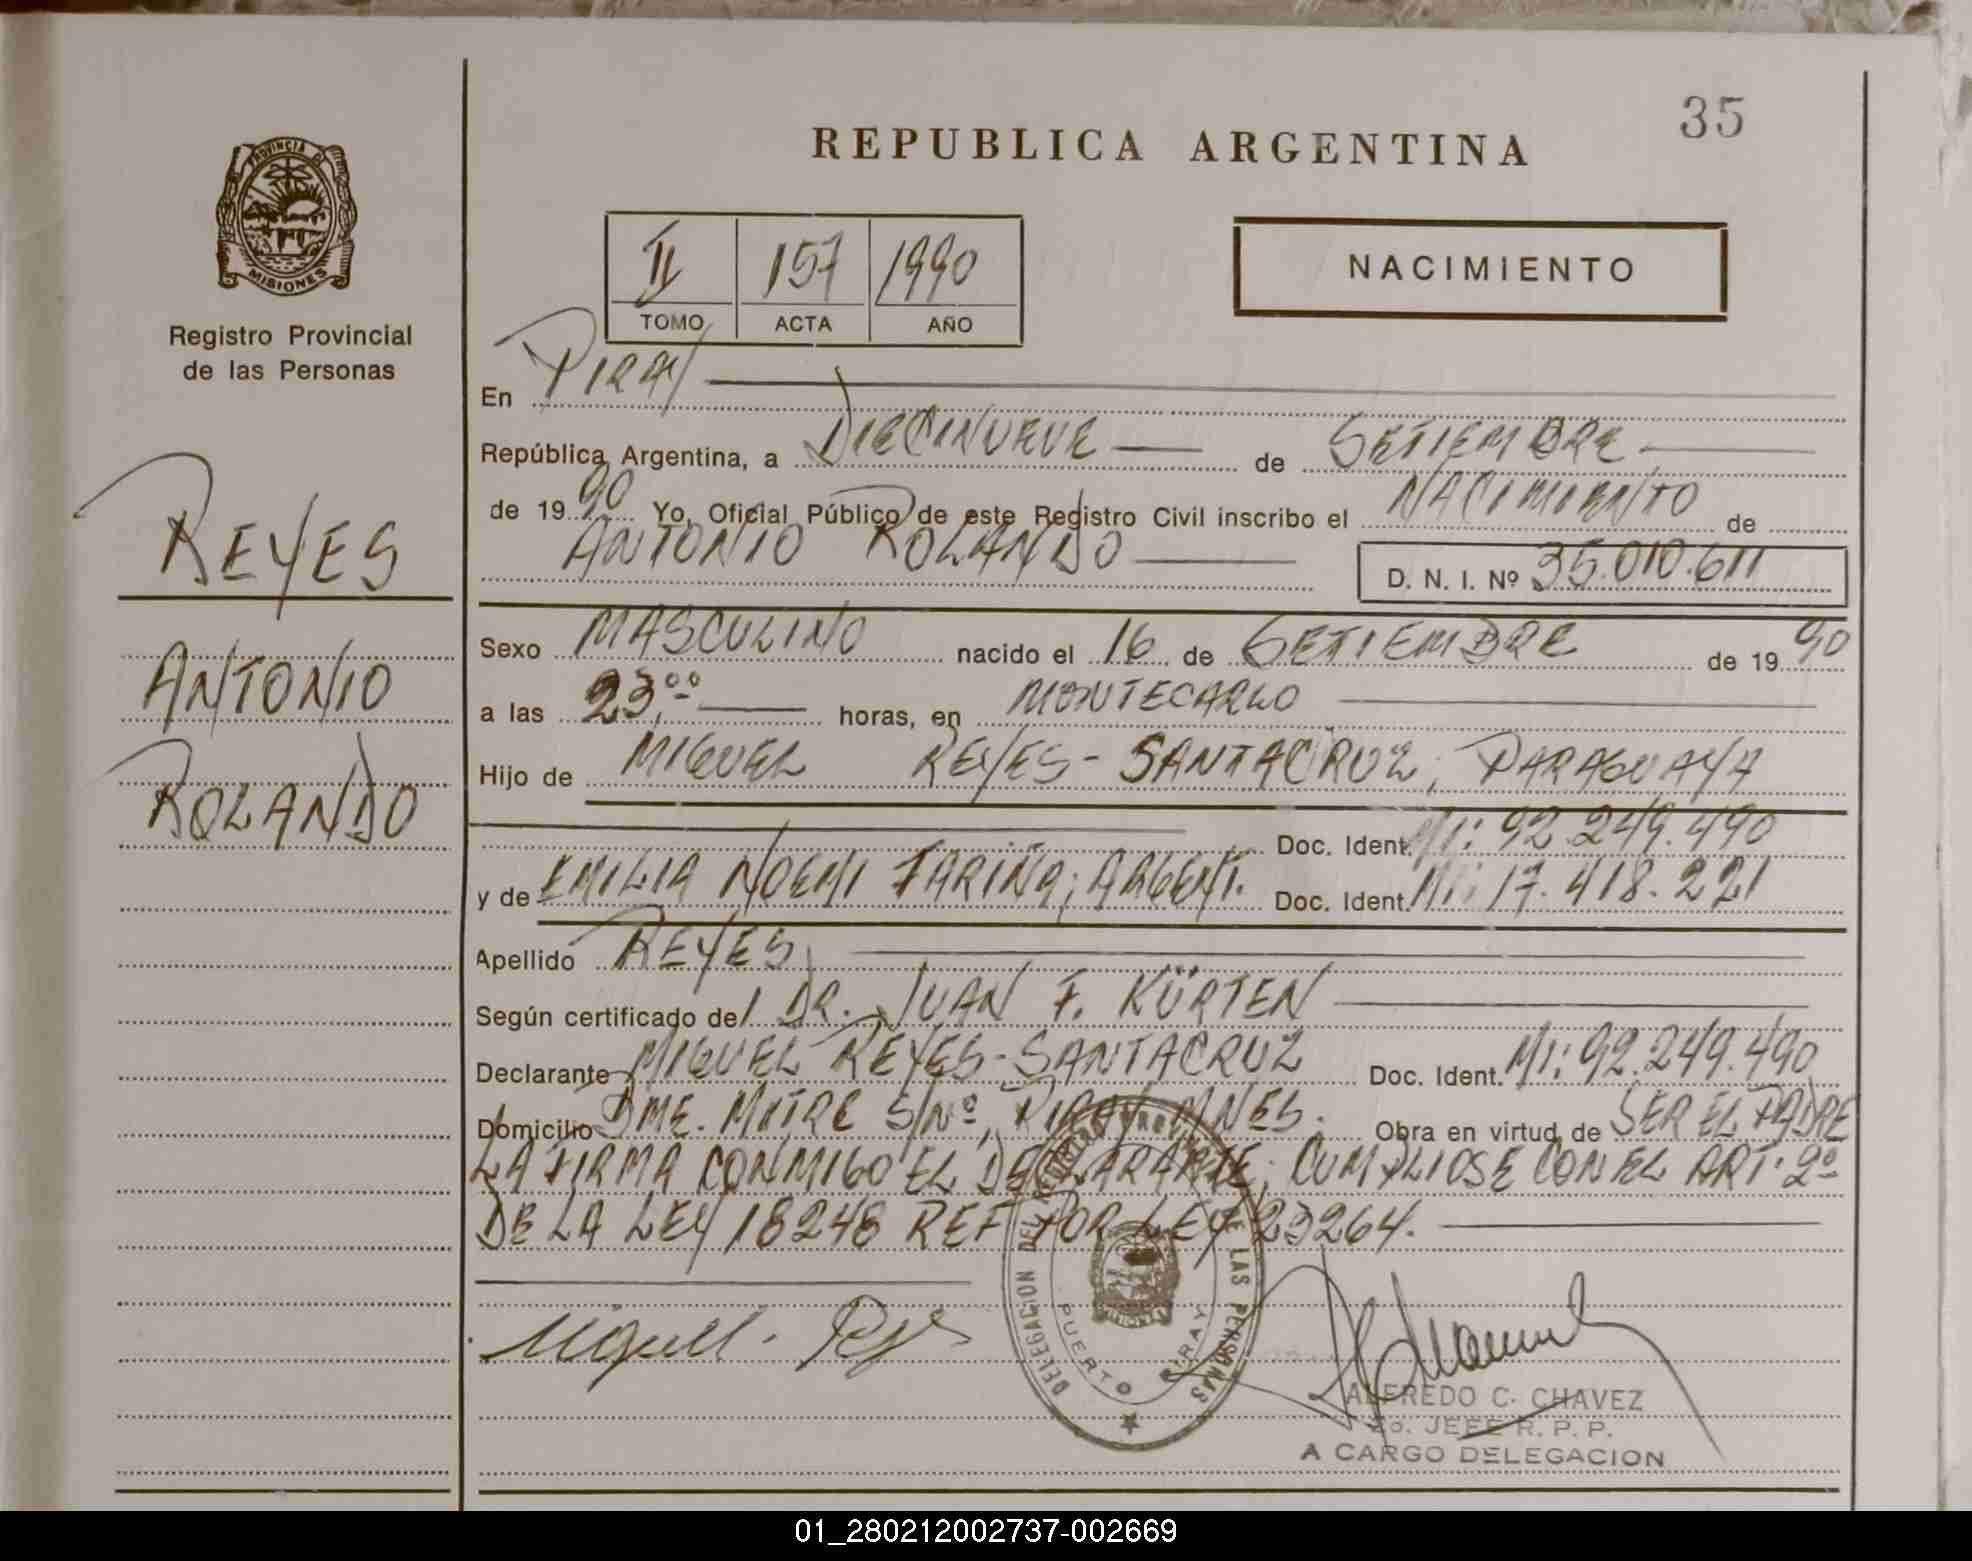 35
REPUBLICA ARGENTINA
PROVINCIA DE
MISIONES
Registro Provincial
de las Personas
II 157 1990
TOMO ACTA AÑO
NACIMIENTO
REYES
ANTONIO
ROLANDO
En PIRAY
República Argentina, a DIECINUEVE de SETIEMBRE
de 1990 Yo, Oficial Público de este Registro Civil inscribo el NACIMIENTO de
ANTONIO ROLANDO D. N. I. Nº 35.010.611
Sexo MASCULINO nacido el 16 de SETIEMBRE de 1990
a las 23,00 horas, en MONTECARLO
Hijo de MIGUEL REYES-SANTACRUZ; PARAGUAYA
Doc. Ident. MI: 92.249.490
y de EMILIA NOEMI FARIÑA; ARGENT. Doc. Ident. MI: 17.418.221
Apellido REYES
Según certificado del DR. JUAN F. KÜRTEN
Declarante MIGUEL REYES-SANTACRUZ Doc. Ident. MI: 92.249.490
Domicilio BME. MITRE S/Nº, PIRAY MNES. Obra en virtud de SER EL PADRE
LA FIRMA CONMIGO EL DECLARANTE; CUMPLIOSE CON EL ART. 2º
DE LA LEY 18248 REF POR LEY 23264.
Miguel Reyes
DELEGACION DEL REGISTRO PROVINCIAL DE LAS PERSONAS
PUERTO PIRAY
MISIONES
ALFREDO C. CHAVEZ
2o. JEFE R. P. P.
A CARGO DELEGACION
01_280212002737-002669